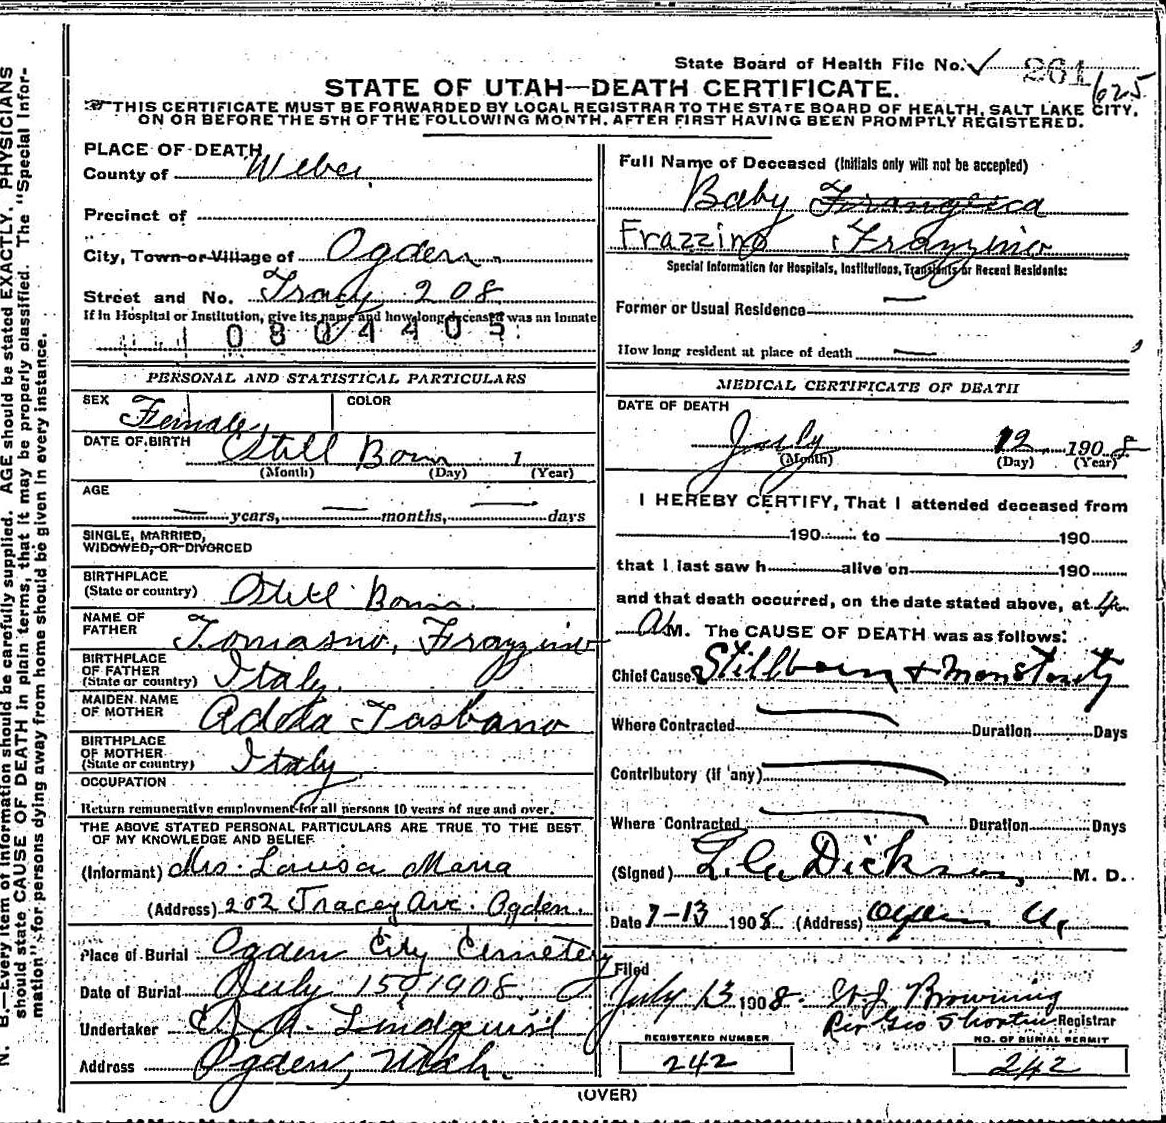 State Board of Health File No. 261 / 625
STATE OF UTAH—DEATH CERTIFICATE.
THIS CERTIFICATE MUST BE FORWARDED BY LOCAL REGISTRAR TO THE STATE BOARD OF HEALTH, SALT LAKE CITY,
ON OR BEFORE THE 5TH OF THE FOLLOWING MONTH, AFTER FIRST HAVING BEEN PROMPTLY REGISTERED.
PLACE OF DEATH
County of Weber
Precinct of
City, Town or Village of Ogden
Street and No. Tracy 208
If in Hospital or Institution, give its name and how long deceased was an Inmate
0804405
PERSONAL AND STATISTICAL PARTICULARS
SEX Female COLOR
DATE OF BIRTH Still Born 1
(Month) (Day) (Year)
AGE
— years, — months, — days
SINGLE, MARRIED,
WIDOWED, OR DIVORCED
BIRTHPLACE
(State or country) Still Born
NAME OF
FATHER Tomasno, Frazzino
BIRTHPLACE
OF FATHER
(State or country) Italy
MAIDEN NAME
OF MOTHER Tasbano
BIRTHPLACE
OF MOTHER
(State or country) Italy
OCCUPATION
Return remunerative employment for all persons 10 years of age and over.
THE ABOVE STATED PERSONAL PARTICULARS ARE TRUE TO THE BEST
OF MY KNOWLEDGE AND BELIEF.
(Informant) Mrs. Louisa Marra
(Address) 202 Tracey Ave. Ogden
Place of Burial Ogden City Cemetery
Date of Burial July 15, 1908.
Undertaker Lindquist
Address Ogden, Utah.
Full Name of Deceased (Initials only will not be accepted)
Baby
Frazzino Frazzino
Special Information for Hospitals, Institutions, Transients or Recent Residents:
Former or Usual Residence —
How long resident at place of death —
MEDICAL CERTIFICATE OF DEATH
DATE OF DEATH
July 12 1908
(Month) (Day) (Year)
I HEREBY CERTIFY, That I attended deceased from
190 to 190
that I last saw h alive on 190
and that death occurred, on the date stated above, at 4
A M. The CAUSE OF DEATH was as follows:
Chief Cause Stillborn & monstosity
Where Contracted — Duration Days
Contributory (if any) —
Where Contracted — Duration Days
(Signed) Dickson, M. D.
Date 7-13 1908 (Address) Ogden U,
Filed
July 13 1908 Browning
Per Geo Shorten Registrar
REGISTERED NUMBER
242
NO. OF BURIAL PERMIT
242
(OVER)
N. B.—Every item of information should be carefully supplied. AGE should be stated EXACTLY. PHYSICIANS
should state CAUSE OF DEATH in plain terms, that it may be properly classified. The "Special Infor-
mation" for persons dying away from home should be given in every instance.